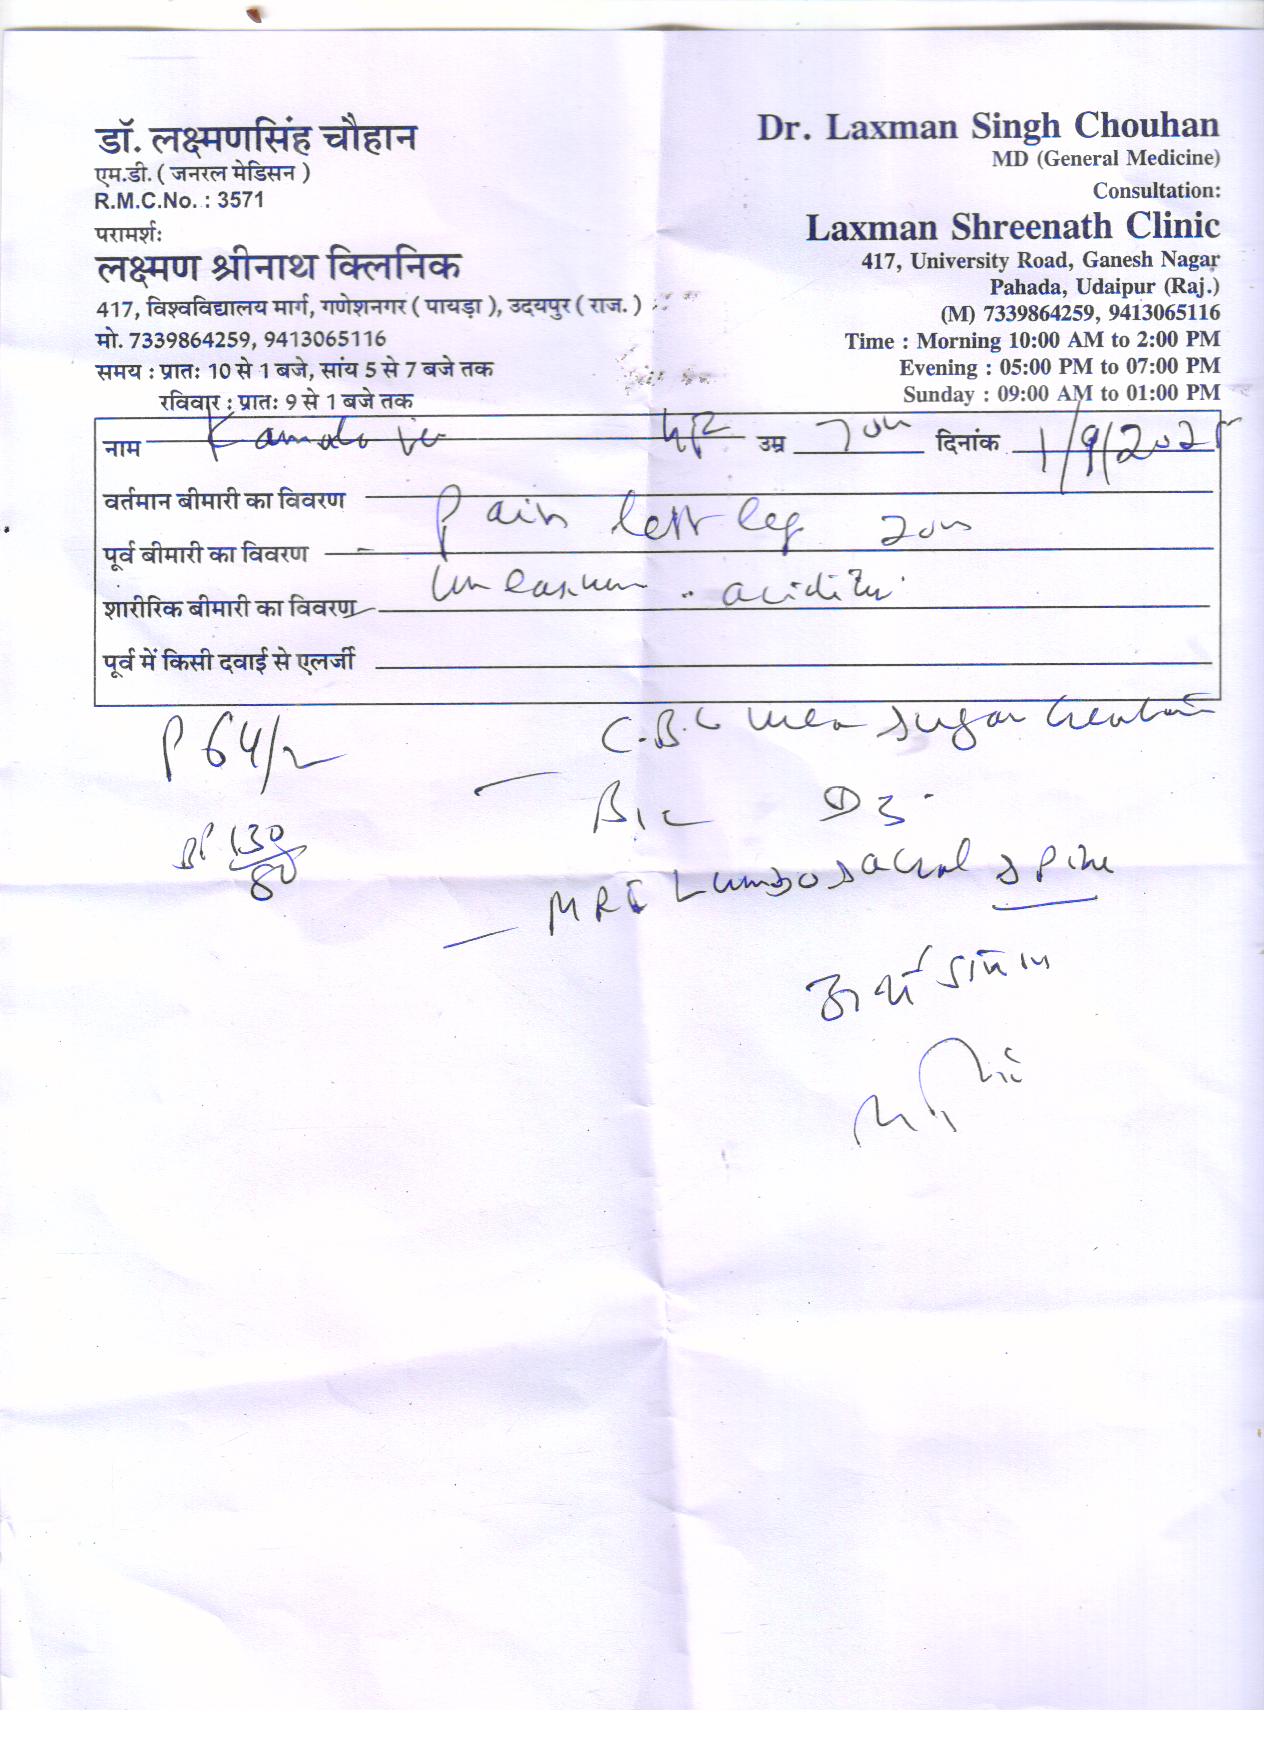 डॉ. लक्ष्मणसिंह चौहान
एम.डी. ( जनरल मेडिसन )
R.M.C.No. : 3571
परामर्श:
लक्ष्मण श्रीनाथ क्लिनिक
417, विश्वविद्यालय मार्ग, गणेशनगर ( पायड़ा ), उदयपुर ( राज. )
मो. 7339864259, 9413065116
समय : प्रातः 10 से 1 बजे, सांय 5 से 7 बजे तक
रविवार : प्रातः 9 से 1 बजे तक
Dr. Laxman Singh Chouhan
MD (General Medicine)
Consultation:
Laxman Shreenath Clinic
417, University Road, Ganesh Nagar
Pahada, Udaipur (Raj.)
(M) 7339864259, 9413065116
Time : Morning 10:00 AM to 2:00 PM
Evening : 05:00 PM to 07:00 PM
Sunday : 09:00 AM to 01:00 PM
नाम उम्र दिनांक 1/9/2025
वर्तमान बीमारी का विवरण
Pain left leg
पूर्व बीमारी का विवरण
acidity
शारीरिक बीमारी का विवरण
पूर्व में किसी दवाई से एलर्जी
P 64/
C.B.C Urea Sugar Creatinine
B12 D3
BP 130/80
MRI Lumbosacral Spine